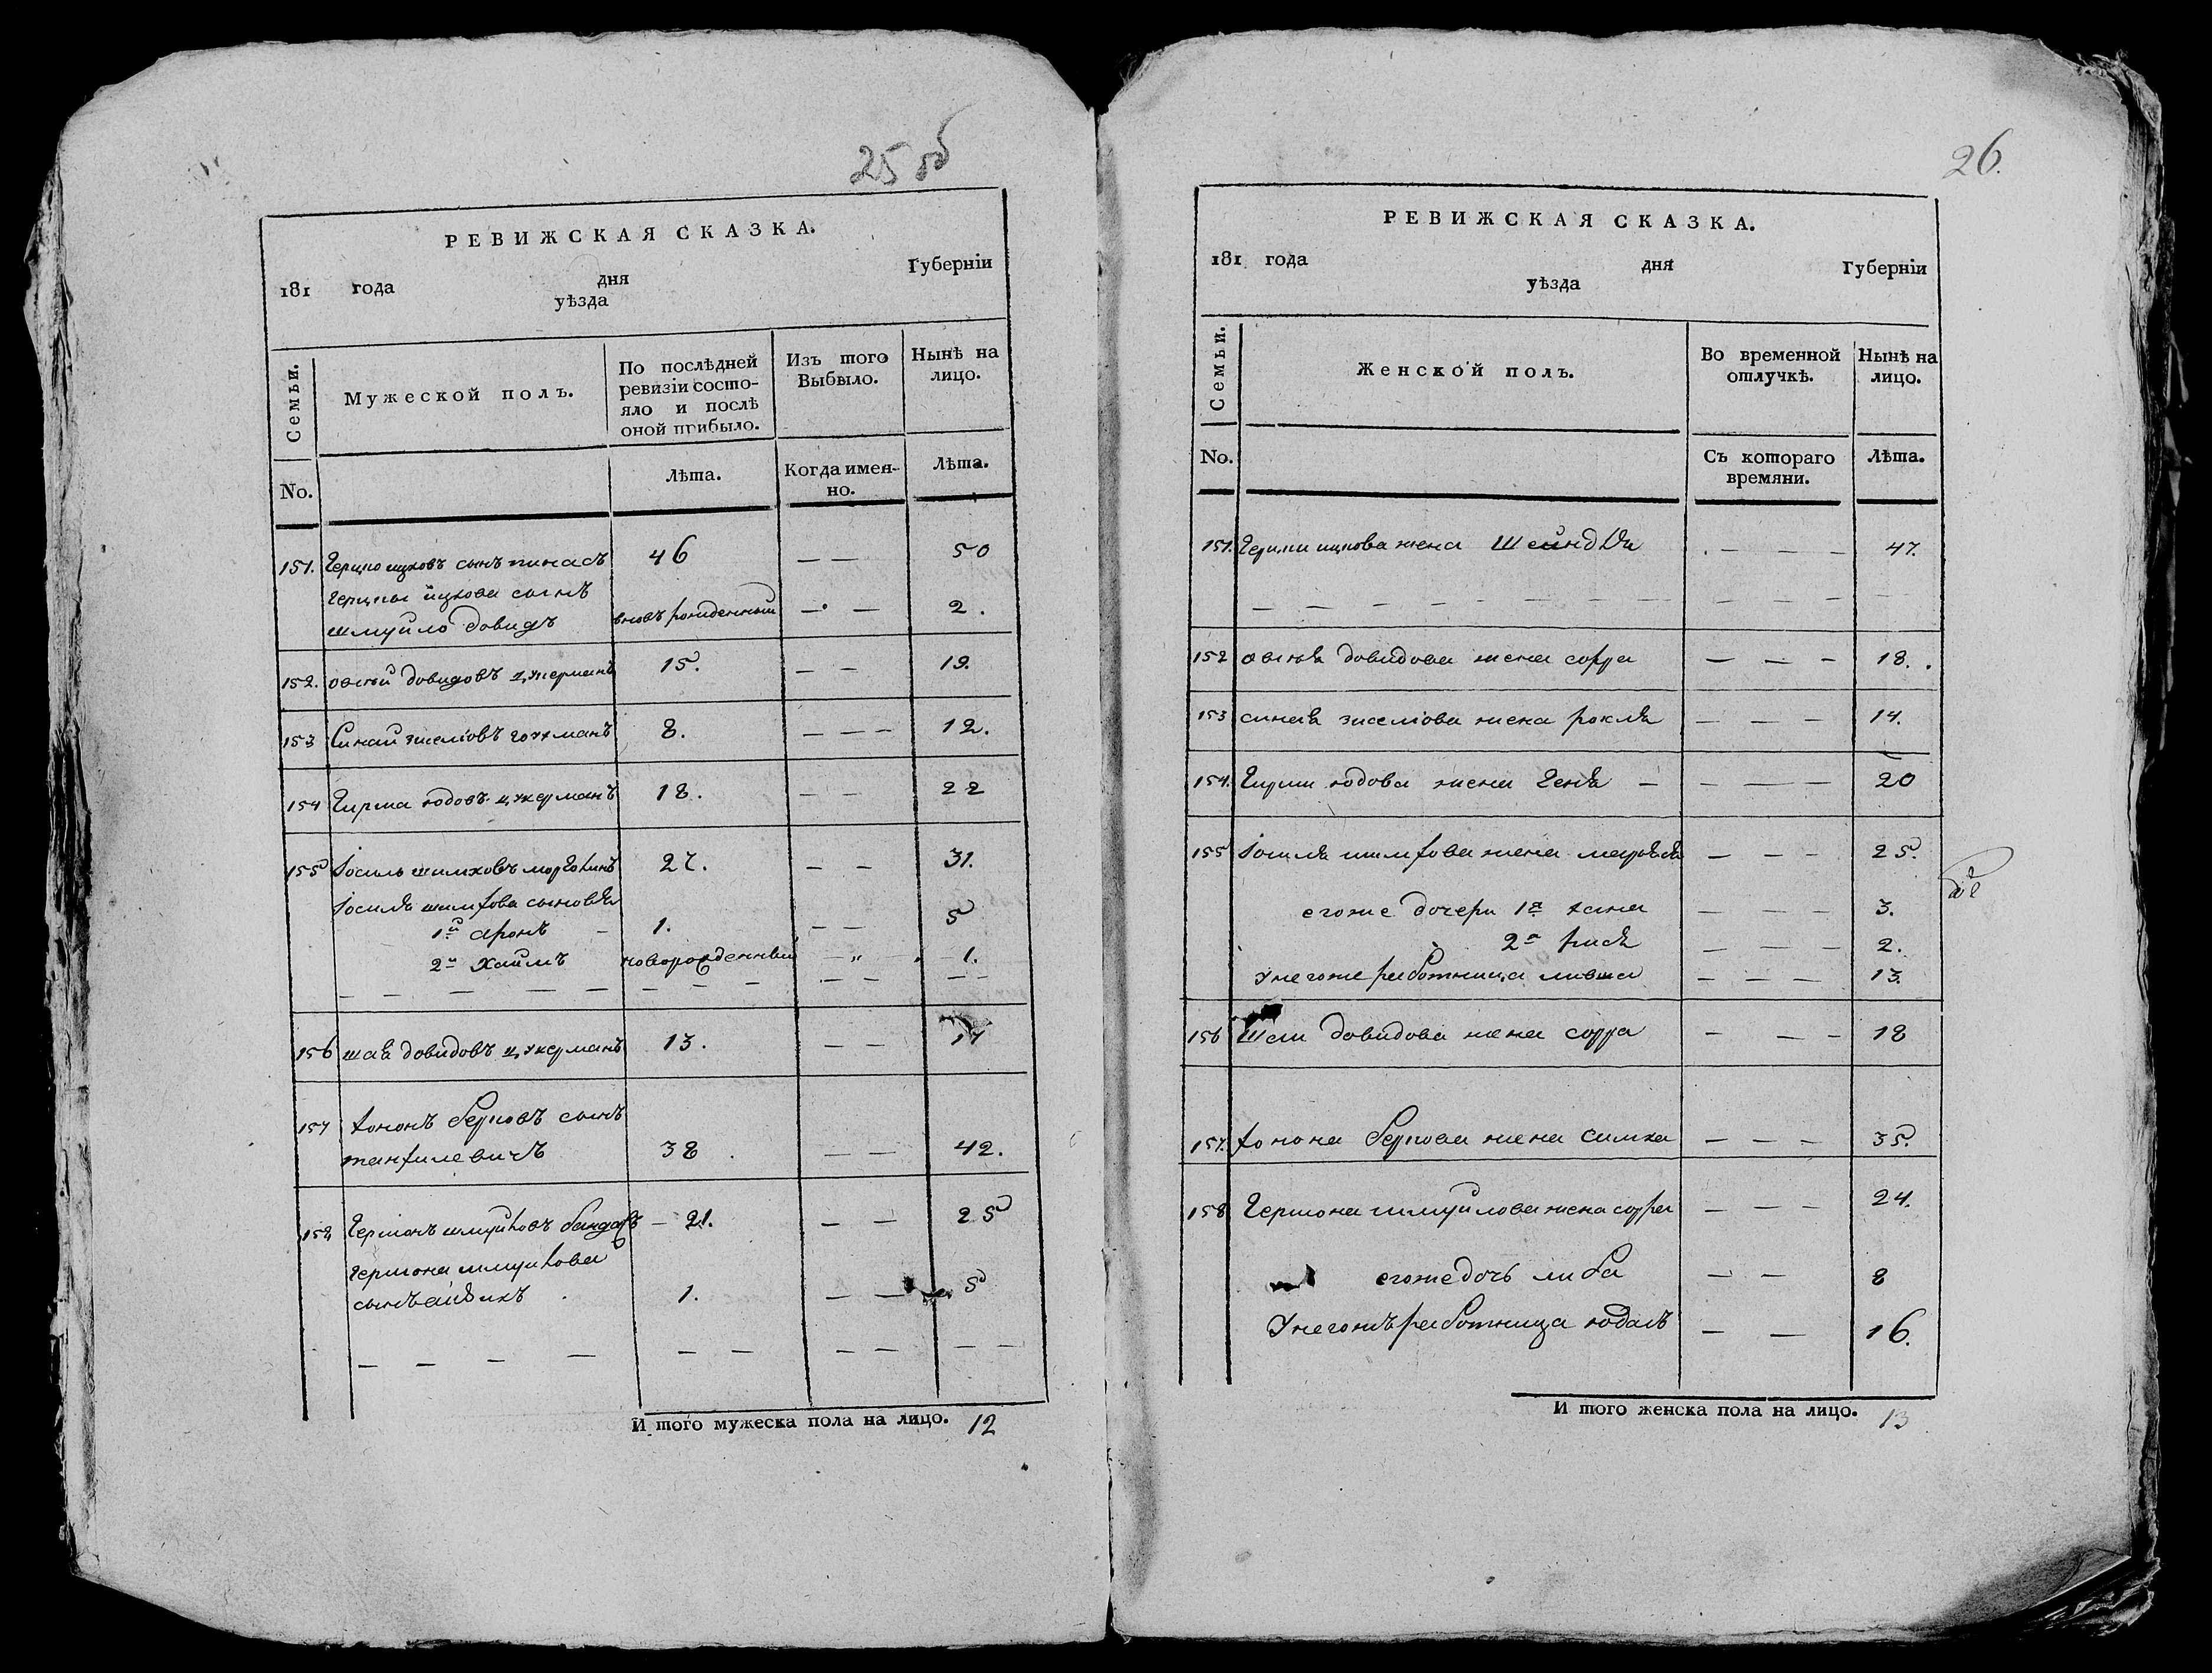 25 об
РЕВИЖСКАЯ СКАЗКА.
181 года дня Губерніи
уѣзда
Семьи.
Мужеской полъ.
По послѣдней ревизіи состо-
яло и послѣ
оной прибыло.
Изъ того
Выбыло.
Нынѣ на
лицо.
No.
Лѣта.
Когда имен-
но.
Лѣта.
151. Герцко ицковъ сынъ пинасъ 46 — — 50
герцки ицкова сынъ
шмуйло довидъ вновь рожденный — — 2.
152. овсѣй довидовъ цукерманъ 15. — — 19.
153 Синай зиселіовъ гохманъ 8. — — — 12.
154 Гирша юдовъ цукерманъ 18. — — 22
155 Іосиль шимховъ 27. — — 31.
Іосиля шимхова сыновья
1й аронъ — 1. — — 5
2й Хаимъ новорожденный — „ 1.
— — — — — — — — — — — — —
156 шая довидовъ цукерманъ 13. — — 17
157 хононъ берковъ сынъ
танхилевичъ 38 — — 42.
158 Гершонъ шмуйловъ — 21. — — 25
гершона шмуйлова
сынъ айзикъ 1. — — 5
— — — — — — — — — —
И того мужеска пола на лицо. 12
26.
РЕВИЖСКАЯ СКАЗКА.
181 года дня Губерніи
уѣзда
Семьи.
Женской полъ.
Во временной
отлучкѣ.
Нынѣ на
лицо.
No.
Съ котораго
времяни.
Лѣта.
151. Герцки ицкова жена Шейндля — — — 47.
— — — — — — — — — — — —
152 овсѣя довидова жена сорра — — — 18.
153 синая зиселіова жена рохля — — — 14.
154. Гирши юдова жена геня — — — — 20
155 Іосиля шимхова жена марьяся — — — 25.
егоже дочери 1я хана — — — 3.
2я рися — — — 2.
У негоже работница ливша — — — 13.
156 Шаи довидова жена сорра — — — 18
157. хонона беркова жена симха — — — 35.
158 Гершона шмуйлова жена сорра — — — 24.
егоже дочь либа — — 8
У негожъ работница юдась — — 16.
И того женска пола на лицо. 13